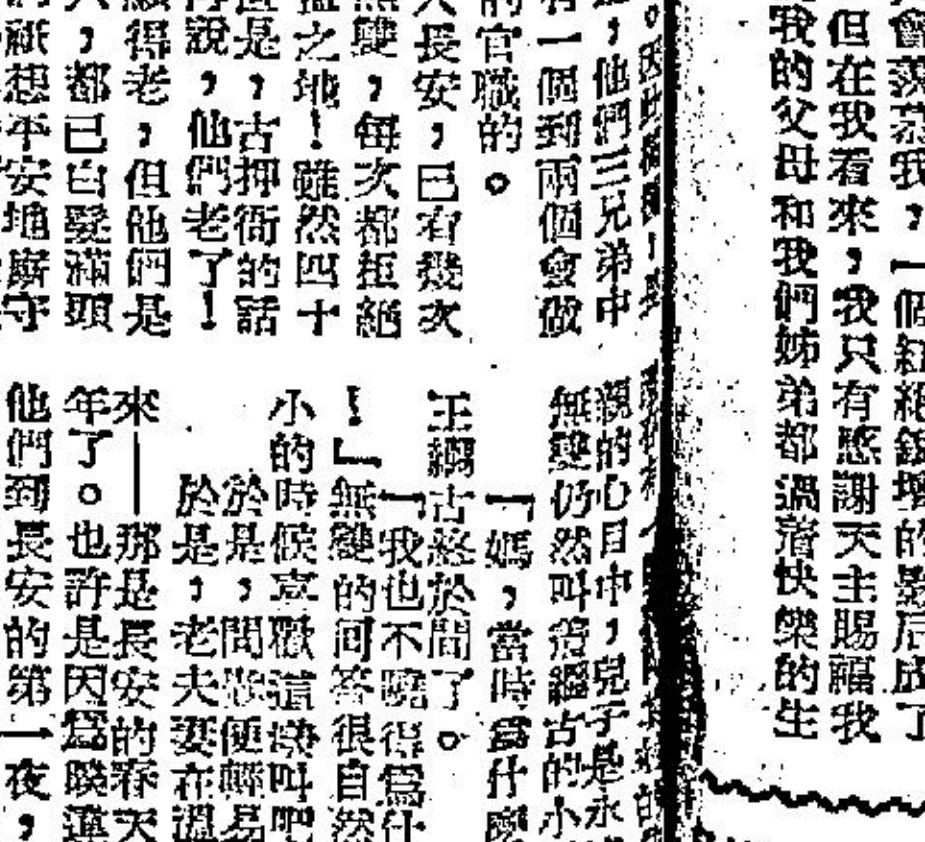 會羨慕我，一個紅絕銀壇的影后成了
但在我看來，我只有感謝天主賜福我
我的父母和我們姊弟都過着快樂的生
，他們三兄弟中
有一個到兩個會做
的官職的。
長安，已有幾次
無雙，每次都拒絕
之地！雖然四十
是，古押衙的話
說，他們老了！
得老，但他們是
，都已白髮滿頭
們祇想平安地廝守
親的心目中，兒子是永
無雙仍然叫着繼古的小
「媽，當時爲什麼
王繼古終於問了。
「我也不曉得爲什
！」無雙的回答很自然
小的時候喜歡這樣叫吧
於是，問題便輕易
於是，老夫妻在溫
來——那是長安的春天
年了。也許是因爲睽違
他們到長安的第一夜，